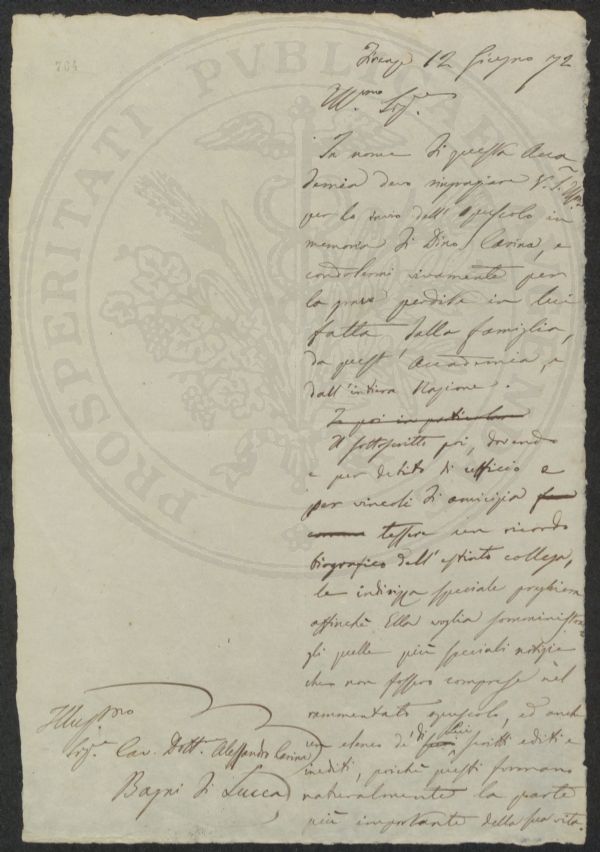 764
Firenze 12 Giugno 72
Ill.mo Sig.e
In nome di questa Acca
demia devo ringraziare V. S. Ill.ma
per lo invio dell'Opuscolo in
memoria di Dino Carina, e
condolermi vivamente per
la grave perdita in lui
fatta dalla famiglia,
da quest'Accademia, e
dall'intiera Nazione.
Io poi in particolare
Il sottoscritto poi, dovendo
e per debito di ufficio e
per vincoli di amicizia
tessere un ricordo
biografico dell'estinto collega,
le indirizza speciale preghiera
affinchè Ella voglia somministrar
gli quelle più speciali notizie
che non fossero comprese nel
rammentato opuscolo, ed anche
un elenco de' di lui scritti editi e
inediti, poichè questi formano
naturalmente la parte
più importante della sua vita.
Illust.mo
Sig.r Cav. Dott. Alessandro Carina
Bagni di Lucca
PROSPERITATI PUBLICAE